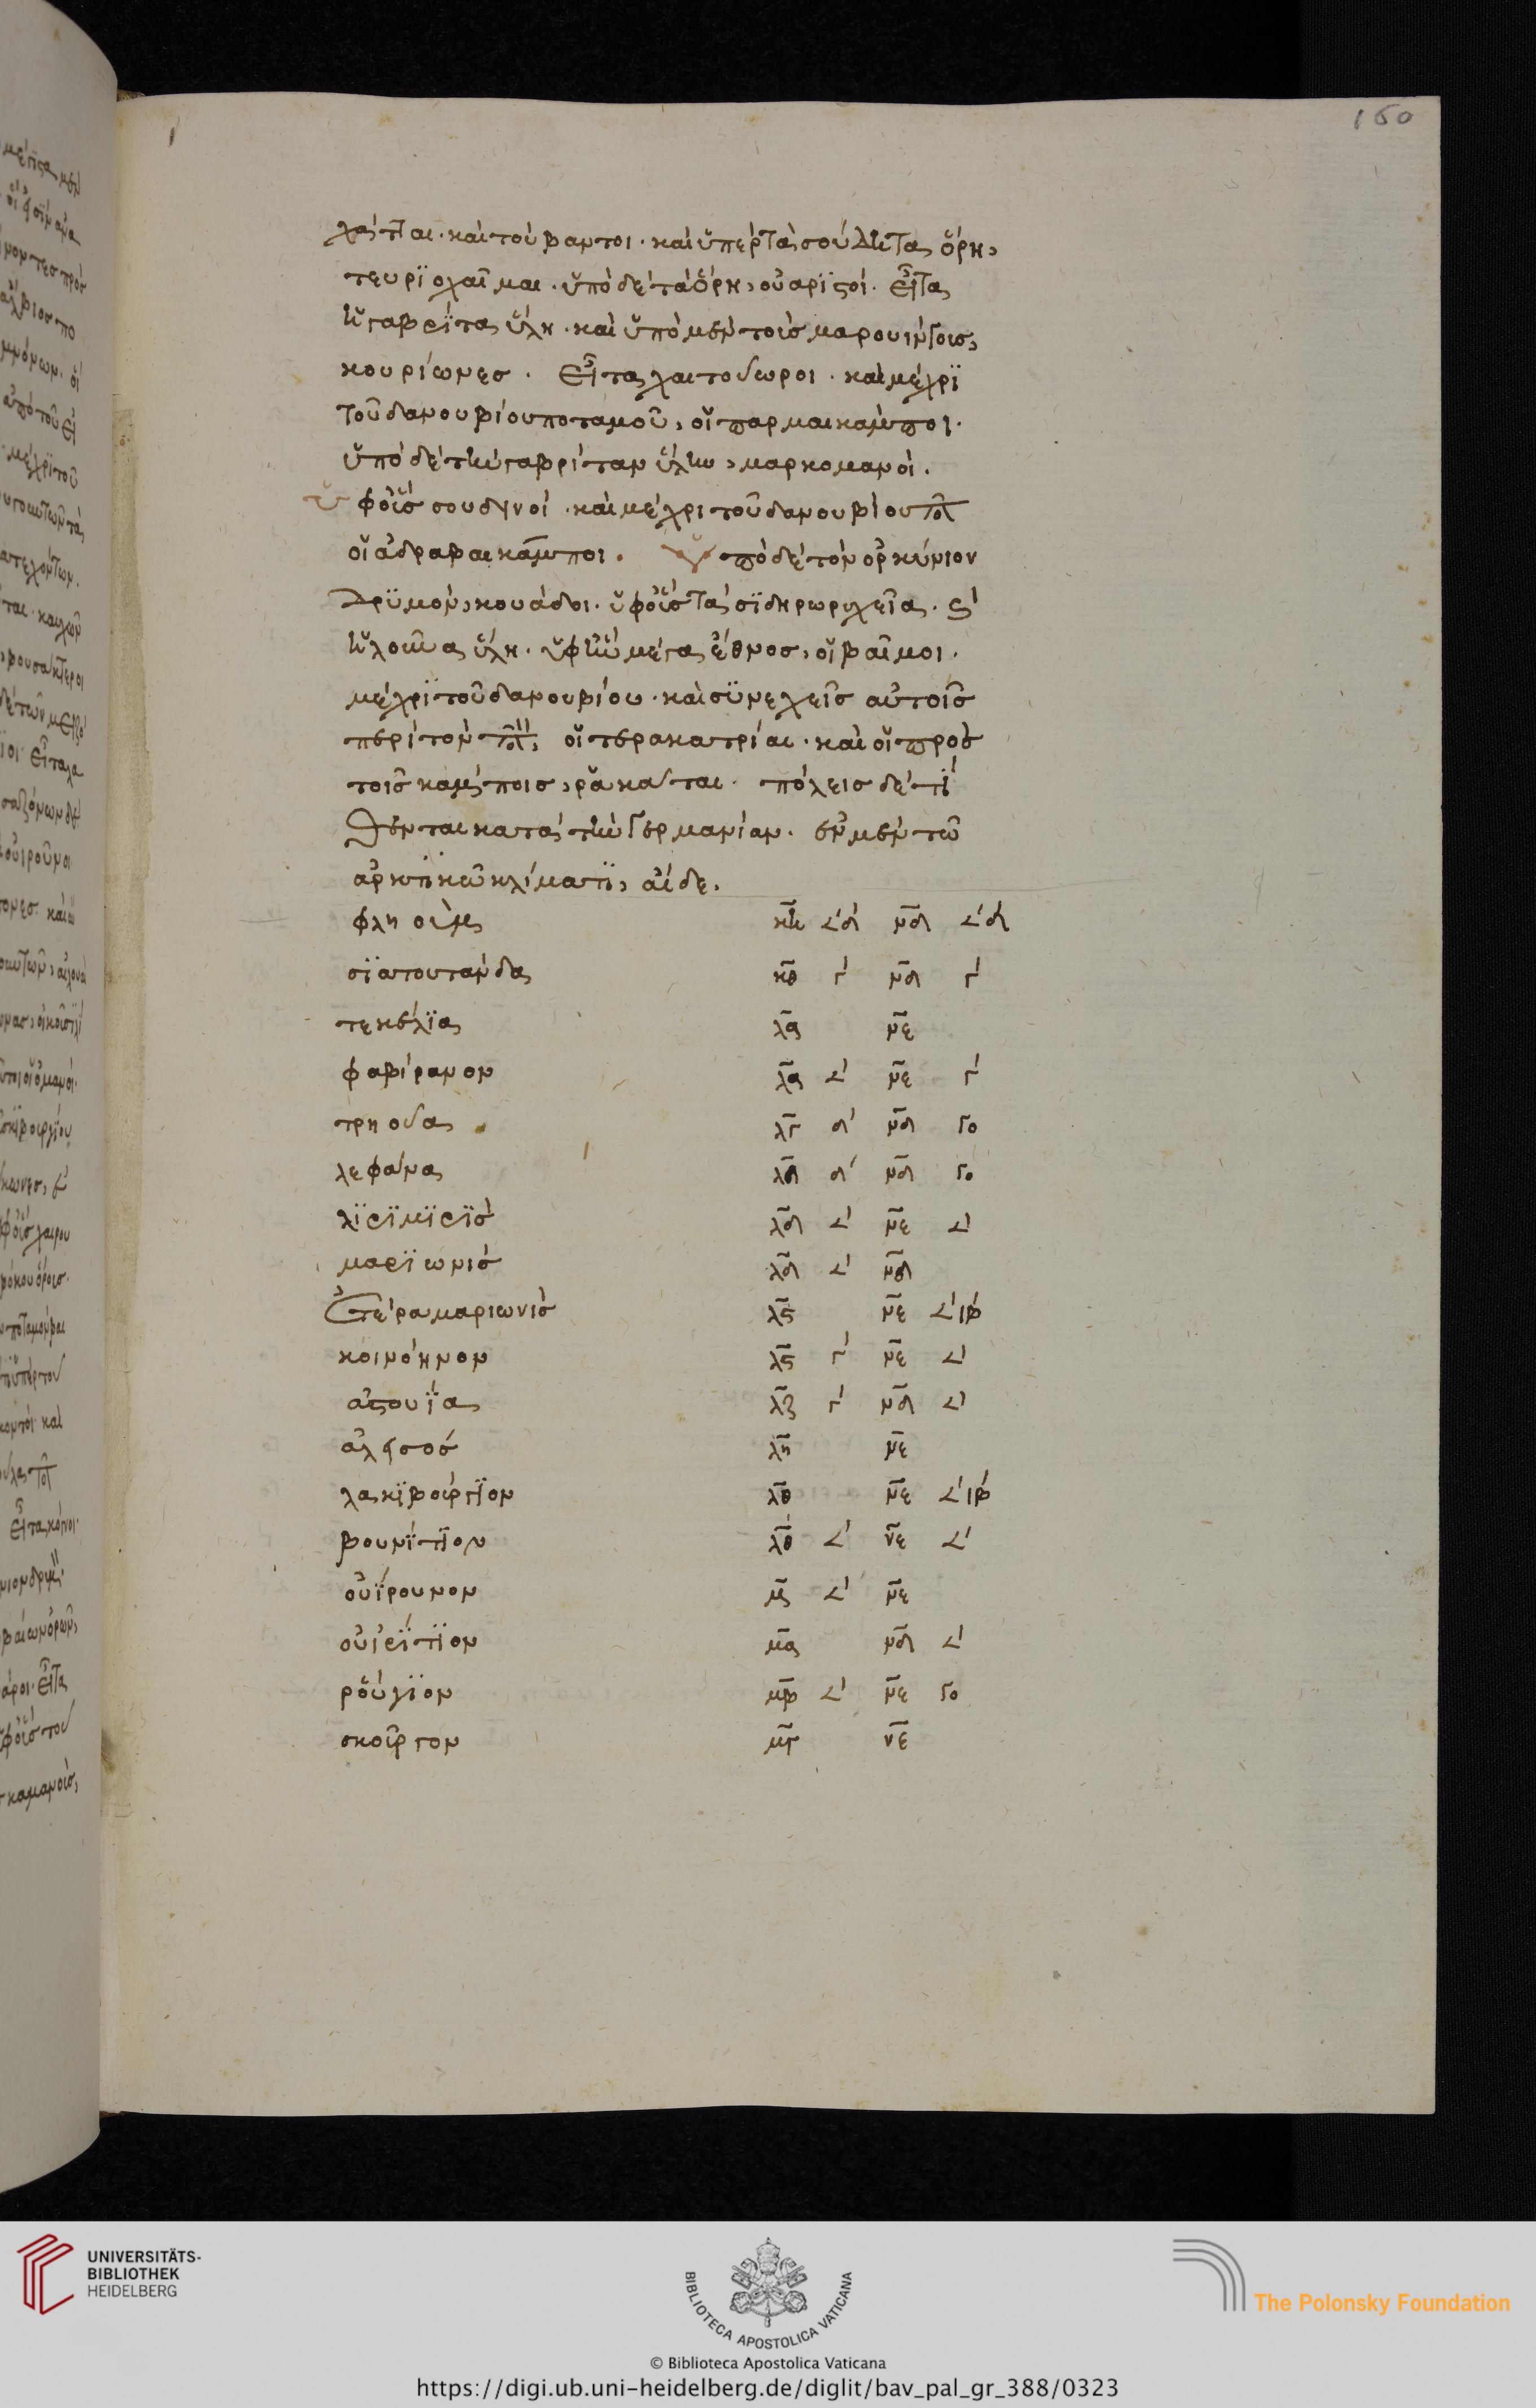 χάτται· καὶ τούβαντοι· καὶ ὑπὲρ τὰ σούδητα ὄρη,
τευριοχαῖμαι· ὑπὸ δὲ τὰ ὄρη, οὐαριστοί· εἶτα
ἡ γαβρίτα ὕλη· καὶ ὑπὸ μὲν τοῖς μαρουίνγοις,
κουρίωνες· εἶτα χαιτούωροι· καὶ μέχρι
τοῦ δανουβίου ποταμοῦ, οἱ παρμαικάμποι·
ὑπὸ δὲ τὴν γαβρίταν ὕλην, μαρκομανοί·
ὑφ' οἷς σουδηνοί· καὶ μέχρι τοῦ δανουβίου πο̅τ
οἱ ἀδραβαικάμποι· ὑπὸ δὲ τὸν ὀρκύνιον
δρυμὸν, κουάδοι· ὑφ' οἷς τὰ σιδηρωρυχεῖα· ϗ
ἡ λοῦνα ὕλη· ὑφ' ἣν μέγα ἔθνος, οἱ βαῖμοι·
μέχρι τοῦ δανουβίου· καὶ συνεχεῖς αὐτοῖς
περὶ τὸν πο̅τ, οἱ τερακατρίαι· καὶ οἱ πρὸς
τοῖς κάμποις, ῥακάται· πόλεις δὲ τί
θενται κατὰ τὴν γερμανίαν· ἐν μὲν τῷ
ἀρκτικῷ κλίματι, αἵδε·
φληοὺμ κη ∠ʹδʹ νδ ∠ʹδʹ
σιατουτάνδα κθ γʹ νδ γʹ
τεκελία λα νε
φαβίρανον λα ∠ʹ νε γʹ
τρηούα λγ δʹ νδ γο
λεφάνα λδ δʹ νδ γο
λιριμιρίς λδ ∠ʹ νε ∠ʹ
μαριωνίς λδ ∠ʹ νδ
ἑτέρα μαριωνίς λϛ νε ∠ʹιβʹ
κοινόηνον λϛ γʹ νε ∠ʹ
ἀστουΐα λζ γʹ νδ ∠ʹ
ἀλησός λη νε
λακιβούργιον λθ νε ∠ʹιβʹ
βουνίτιον λθ ∠ʹ νε ∠ʹ
οὐίρουνον μ ∠ʹ νε
οὐιρίτιον μα νδ ∠ʹ
ῥούγιον μβ ∠ʹ νε γο
σκοῦργον μγ νε
160
UNIVERSITÄTS-
BIBLIOTHEK
HEIDELBERG
BIBLIOTECA APOSTOLICA VATICANA
The Polonsky Foundation
© Biblioteca Apostolica Vaticana
https://digi.ub.uni-heidelberg.de/diglit/bav_pal_gr_388/0323